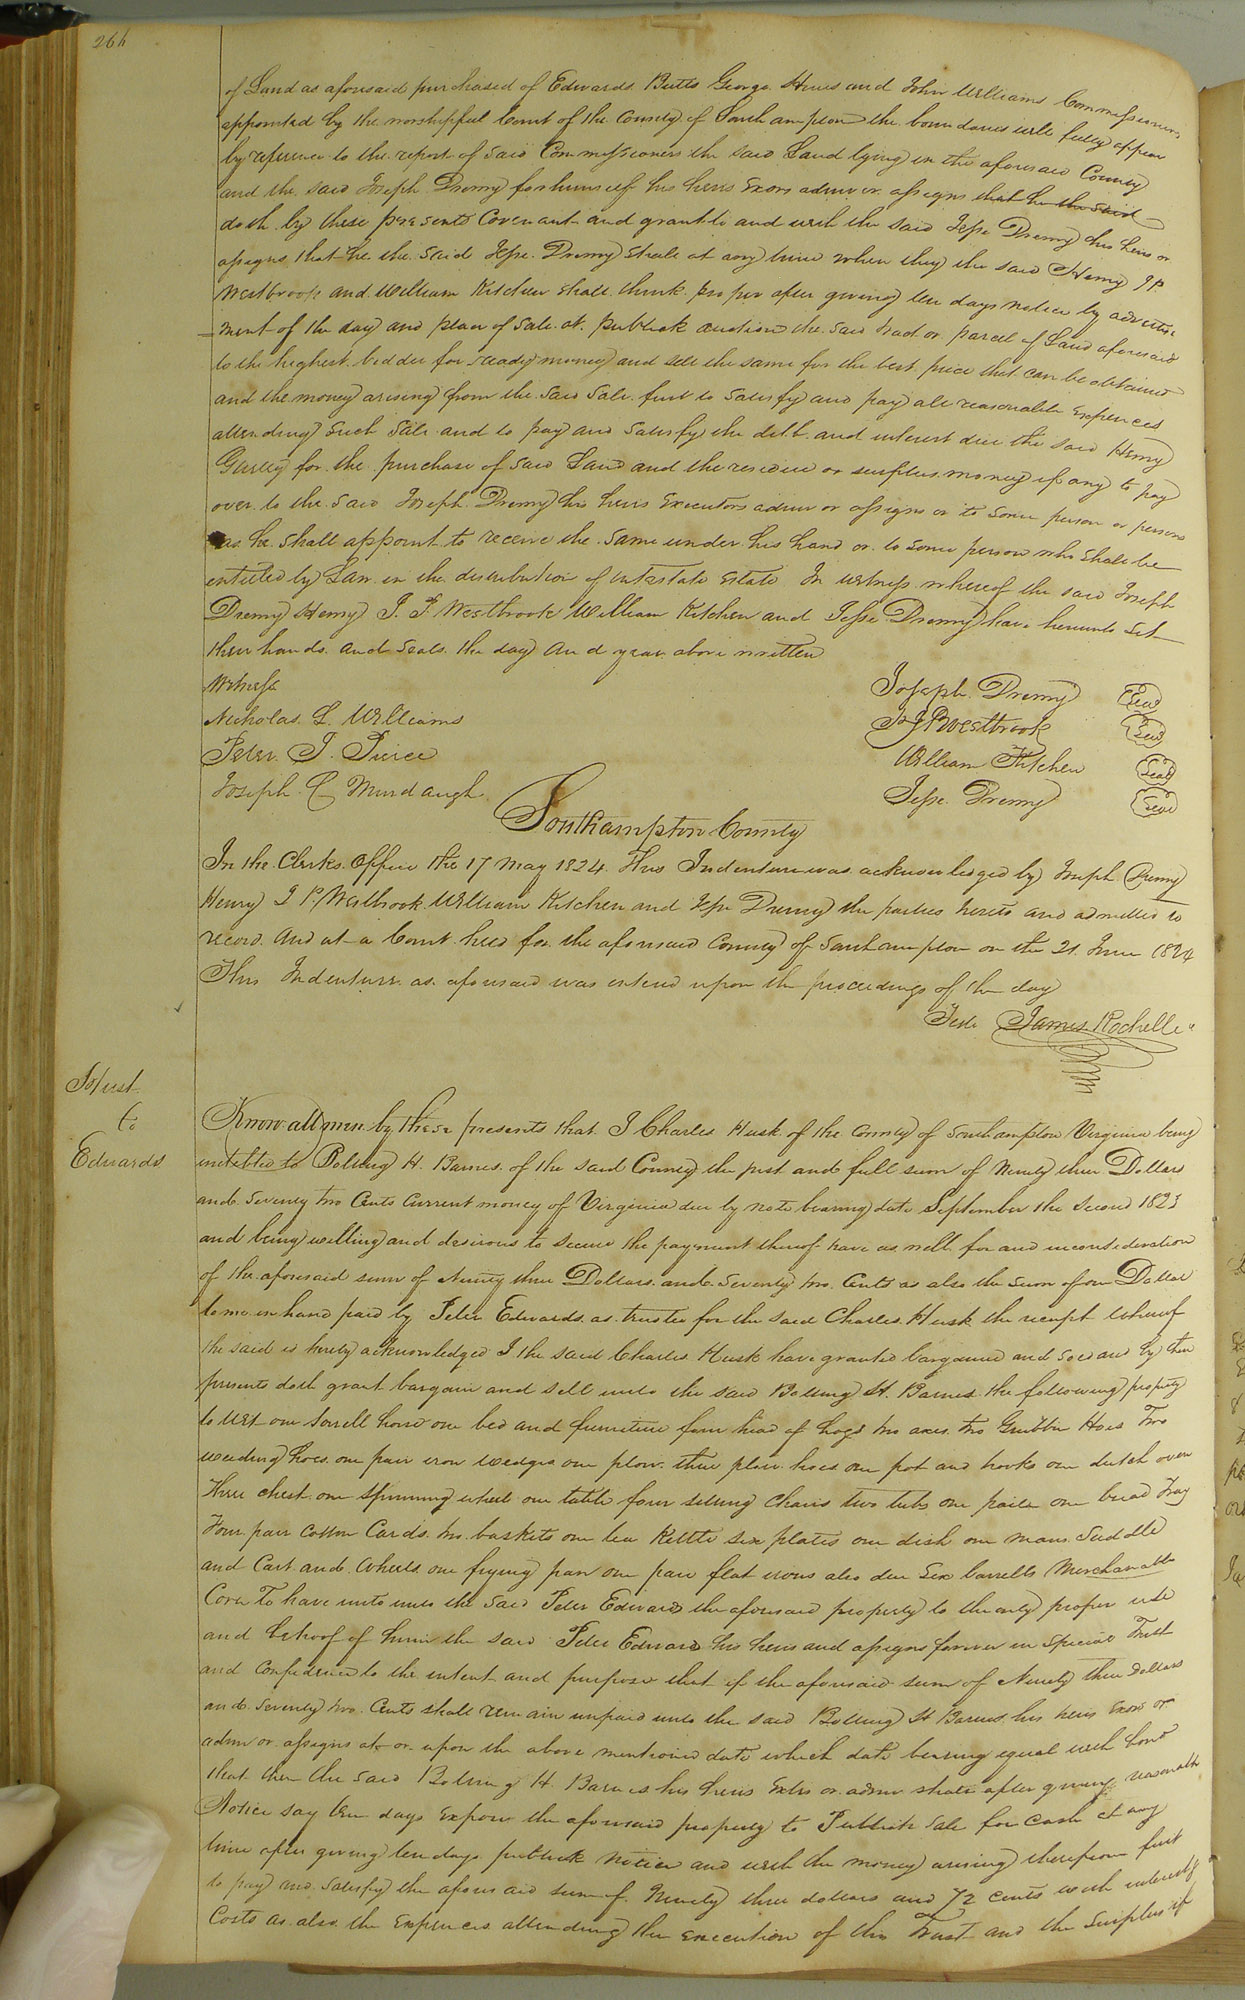 264
of Land as aforesaid purchased of Edwards Butts George Hines and John Williams Commissioners
appointed by the worshipful Court of the County of Southampton the boundaries will fully appear
by reference to the report of said Commissioners the said Land lying in the aforesaid County
and the said Joseph Drewry for himself his heirs Exors admor or assigns that he the said
doth by these presents Covenant and grant to and with the said Jesse Drewry his heirs or
assigns that he the said Jesse Drewry shall at any time when they the said Henry J P
Westbrook and William Kitchen shall think proper after giving ten days notice by advertise
ment of the day and place of sale at publick auction the said tract or parcel of Land aforesaid
to the highest bidder for ready money and sell the same for the best price that can be obtained
and the money arising from the said sale first to satisfy and pay all reasonable expences
attending such sale and to pay and satisfy the debt and interest due the said Henry
Gurley for the purchase of said Land and the residue or surplus money if any to pay
over to the said Joseph Drewry his heirs Executors admor or assigns or to some person or persons
as he shall appoint to receive the same under his hand or to some person who shall be
entitled by Law in the distribution of intestate estate In witness whereof the said Joseph
Drewry Henry J. P. Westbrook William Kitchen and Jesse Drewry have hereunto set
their hands and seals the day and year above written
Witness
Joseph Drewry Seal
Nicholas L. Williams
H J P Westbrook Seal
Peter J. Pierce
William Kitchen Seal
Joseph C Murdaugh
Jesse Drewry Seal
Southampton County
In the Clerks Office the 17 May 1824 This Indenture was acknowledged by Joseph Drewry
Henry J P. Westbrook William Kitchen and Jesse Drewry the parties hereto and admitted to
record And at a Court held for the aforesaid County of Southampton on the 21 June 1824
This Indenture as aforesaid was entered upon the proceedings of the day
Teste James Rochelle
Husk
to
Edwards
Know all men by these presents that I Charles Husk of the County of Southampton Virginia being
indebted to Bolling H. Barnes of the said County the just and full sum of Ninety three Dollars
and Seventy two Cents Current money of Virginia due by note bearing date September the second 1823
and being willing and desirous to secure the payment thereof have as well for and in consideration
of the aforesaid sum of Ninety three Dollars and Seventy two Cents as also the sum of one Dollar
to me in hand paid by Peter Edwards as trustee for the said Charles Husk the receipt whereof
the said is hereby acknowledged I the said Charles Husk have granted bargained and sold and by these
presents doth grant bargain and sell unto the said Bolling H. Barnes the following property
to wit one Sorrell horse one bed and furniture four head of hogs two axes two Grubbin Hoes Two
weeding hoes one pair iron wedges one plow three plow hoes one pot and hooks one dutch oven
Three chest one Spinning wheel one table four setting Chairs two tubs one paile one bread Tray
Four pair Cotton Cards two baskets one tea Kettle six plates one dish one mans Saddle
and Cart and Wheels one frying pan one pair flat irons also due Six barrells Merchanable
Corn To have unto unto the said Peter Edwards the aforesaid property to the only proper use
and behoof of him the said Peter Edwards his heirs and assigns forever in Special Trust
and Confidence to the intent and purpose that if the aforesaid sum of Ninety three dollars
and Seventy two Cents shall remain unpaid unto the said Bolling H Barnes his heirs Exors or
admor or assigns at or upon the above mentioned date which date bearing equal with
that then the said Bolling H. Barnes his heirs Extrs or admor shall after giving reasonable
Notice say ten days expose the aforesaid property to Publick Sale for Cash at any
time after giving ten days publick notice and with the money arising therefrom first
to pay and satisfy the aforesaid sum of Ninety three dollars and 72 cents with interest &
Costs as also the Expences attending the execution of this Trust and the Surplus if